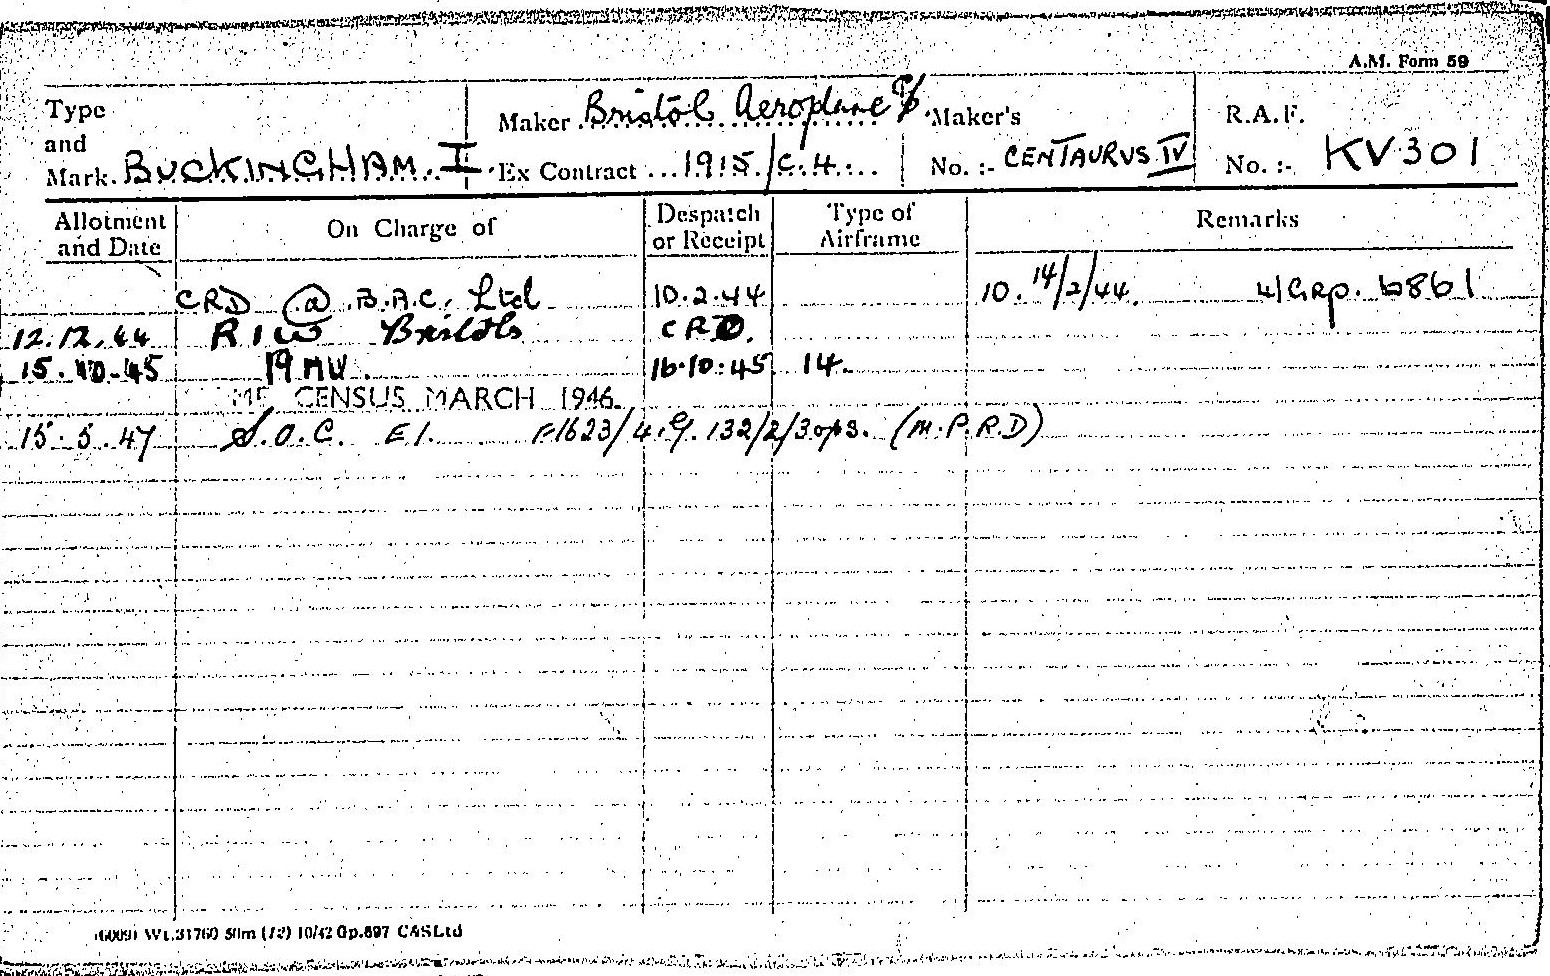 A.M. Form 59
Type and Mark. BUCKINGHAM. I
Maker Bristol Aeroplane
Ex Contract ... 1915/C.4....
Maker's No. :- CENTAURUS IV
R.A.F. No. :- KV301
Allotment and Date On Charge of Despatch or Receipt Type of Airframe Remarks
CRD @ B.A.C. Ltd 10.2.44 10. 14/2/44. 41Grp. 6861
12.12.44 R I W Bristols CRD.
15.10.45 19 MU. 16.10.45 14.
CENSUS MARCH 1946.
15.5.47 S.O.C. E1. F1623/4.G. 132/2/3ops. (M.P.R.D)
(6009) Wt.31760 50m (12) 10/42 Gp.697 CASLtd